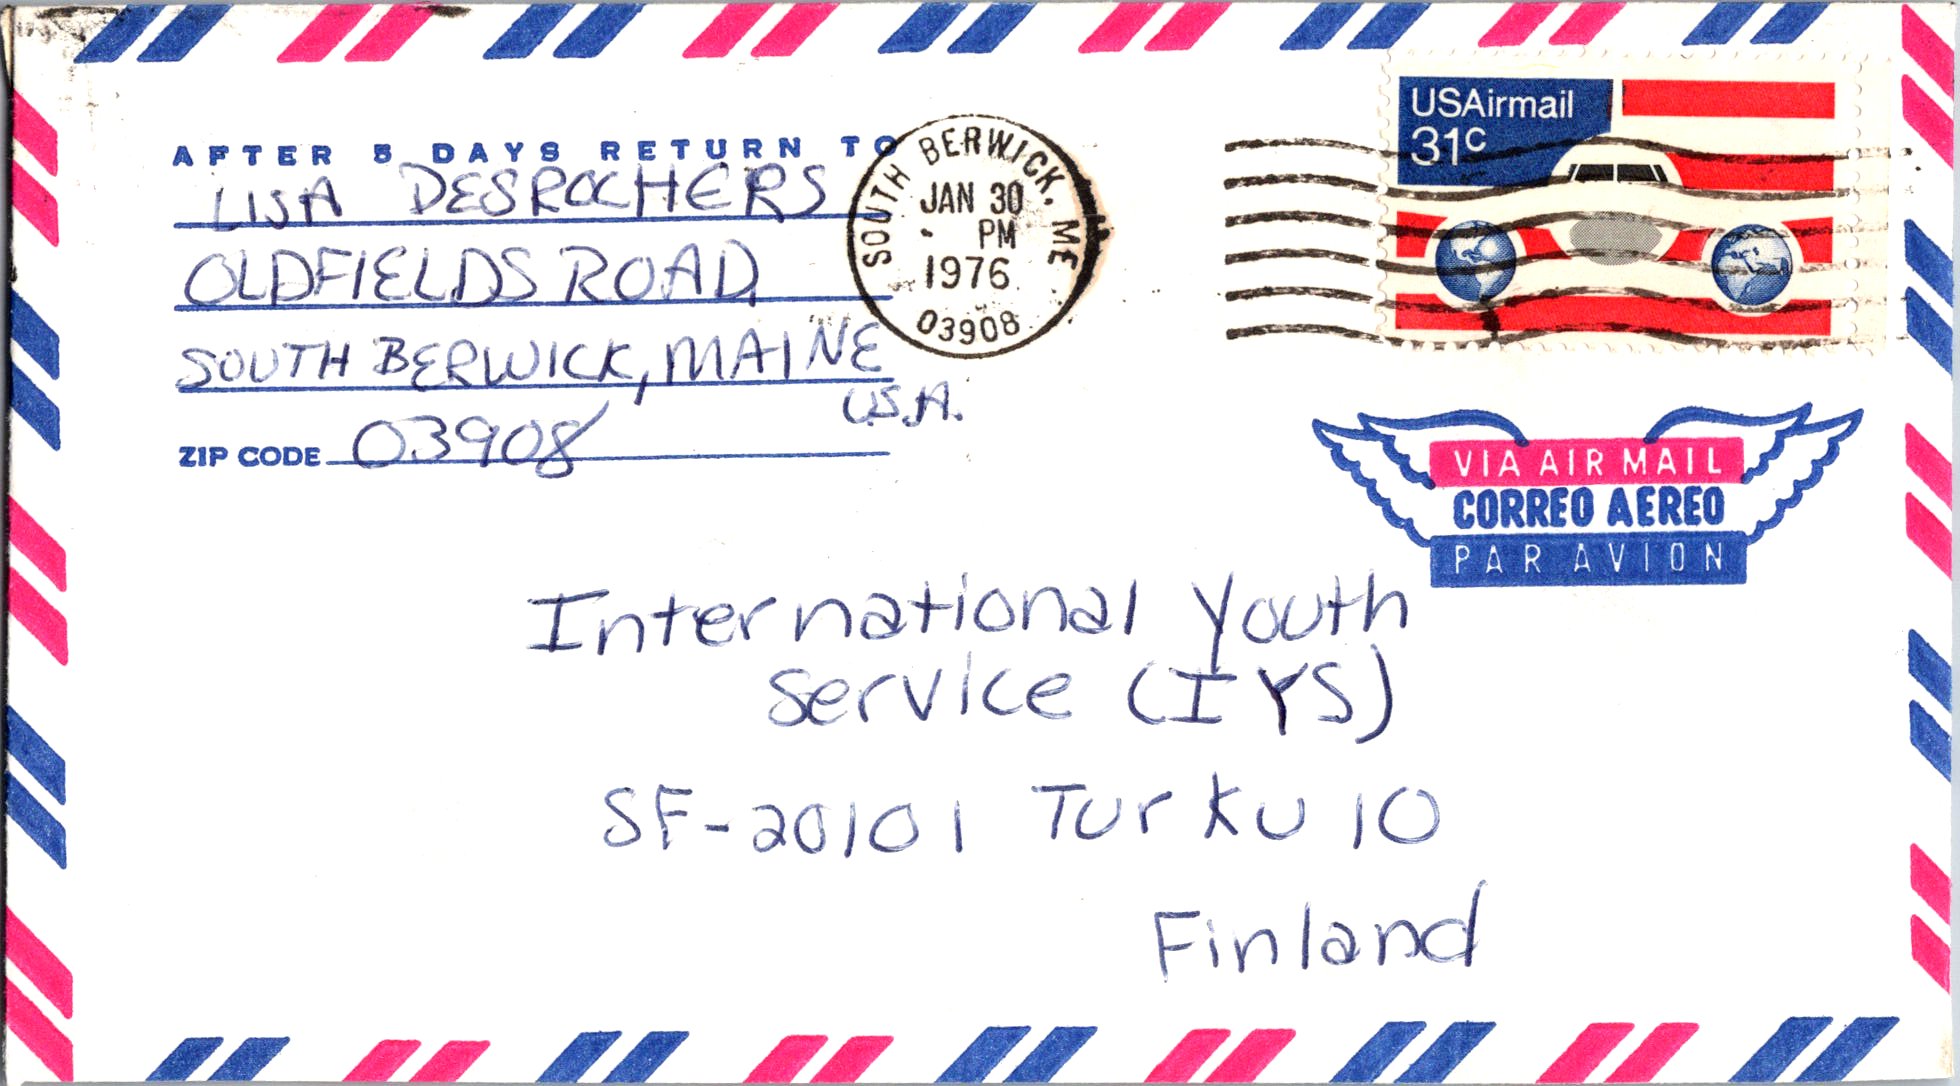 AFTER 5 DAYS RETURN TO
LISA DESROCHERS
OLDFIELDS ROAD
SOUTH BERWICK, MAINE
U.S.A.
ZIP CODE 03908
SOUTH BERWICK, ME
JAN 30
PM
1976
03908
USAirmail
31c
VIA AIR MAIL
CORREO AEREO
PAR AVION
International Youth
Service (IYS)
SF-20101 Turku 10
Finland